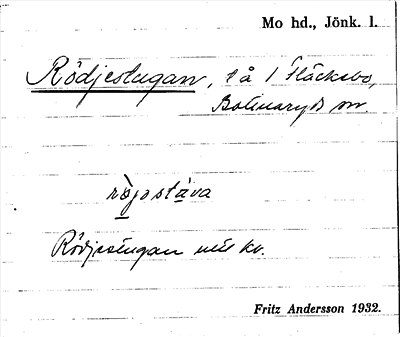 Mo hd., Jönk. l.
Rödjestugan, t å 1 Fläcksbo,
Bolmaryds sn.
ròjostáva
Rödjestugan util kv.
Fritz Andersson 1932.